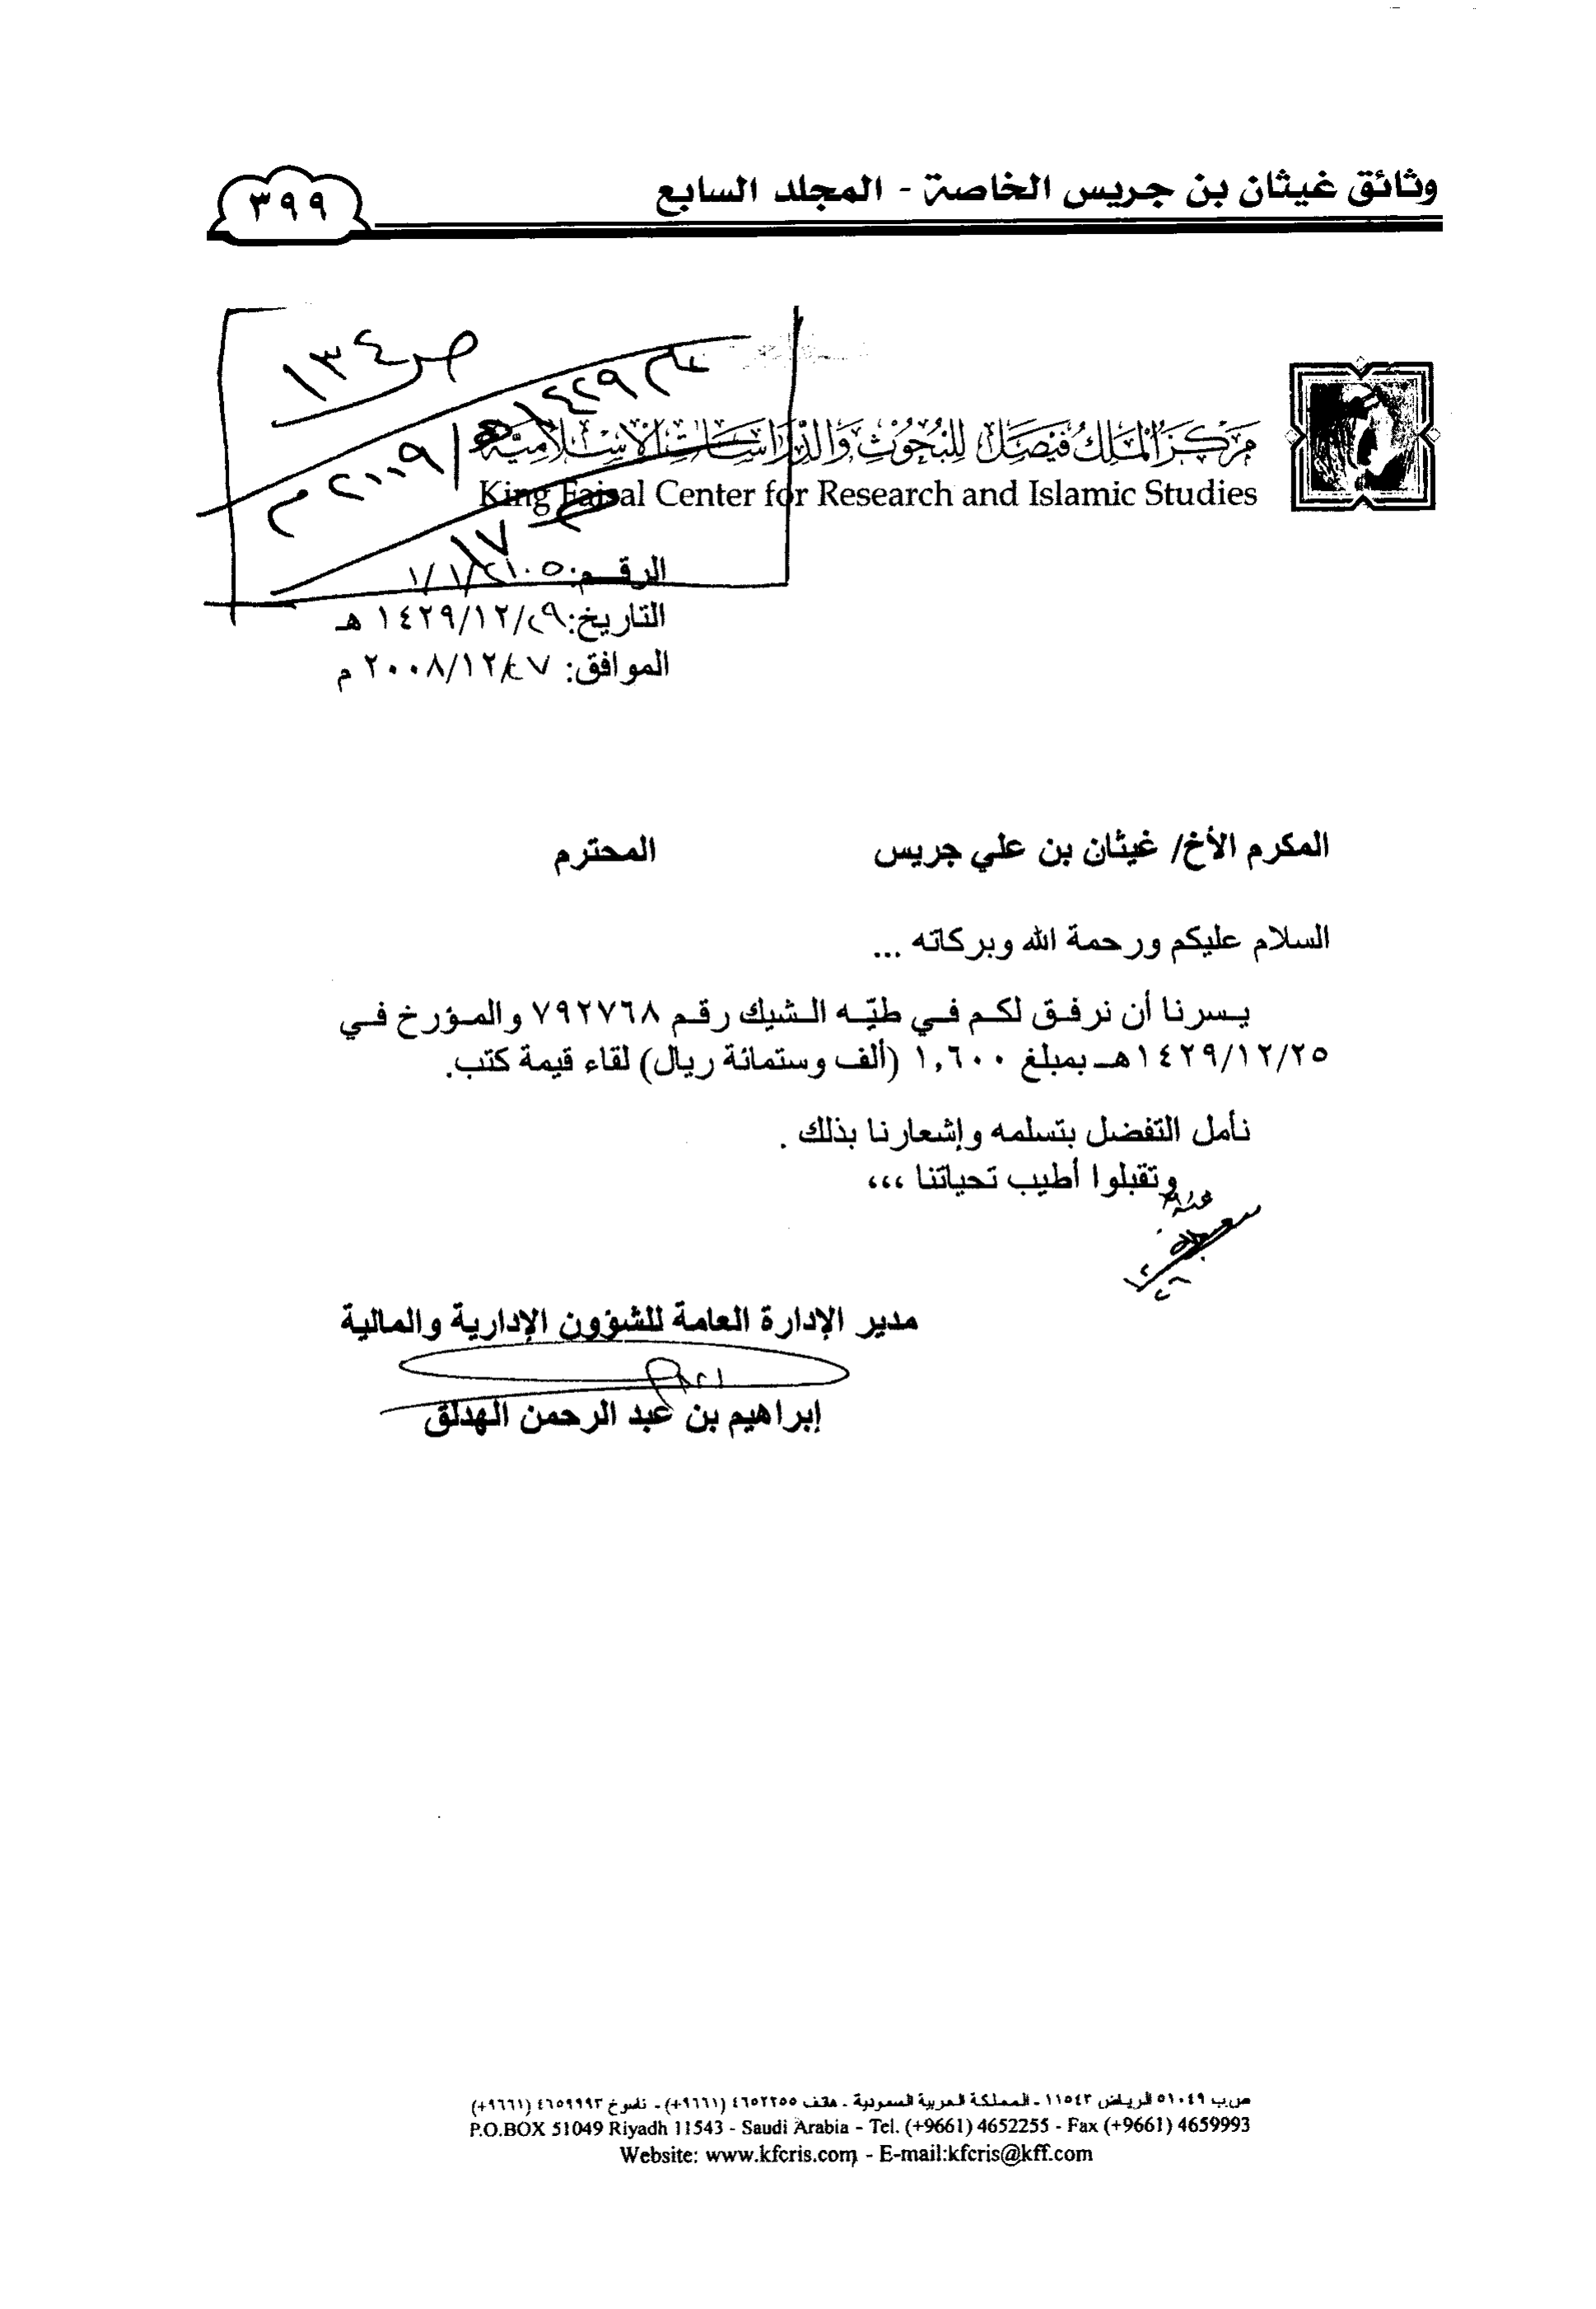 وثائق غيثان بن جريس الخاصة - المجلد السابع
٣٩٩
ص ١٣٤
عام ١٤٢٩هـ / ٢٠٠٩ م
١٧
مركز الملك فيصل للبحوث والدراسات الإسلامية
King Faisal Center for Research and Islamic Studies
الرقم: ١/١/٢١٠٥
التاريخ: ١٤٢٩/١٢/٢٩ هـ
الموافق: ٢٠٠٨/١٢/٢٧ م
المكرم الأخ/ غيثان بن علي جريس المحترم
السلام عليكم ورحمة الله وبركاته ...
يسرنا أن نرفق لكم في طيّه الشيك رقم ٧٩٢٧٦٨ والمؤرخ في
١٤٢٩/١٢/٢٥هـ بمبلغ ١,٦٠٠ (ألف وستمائة ريال) لقاء قيمة كتب.
نأمل التفضل بتسلمه وإشعارنا بذلك .
وتقبلوا أطيب تحياتنا ،،،
مدير الإدارة العامة للشؤون الإدارية والمالية
إبراهيم بن عبد الرحمن الهدلق
ص.ب ٥١٠٤٩ الرياض ١١٥٤٣ - المملكة العربية السعودية - هاتف ٤٦٥٢٢٥٥ (٩٦٦١+) - ناسوخ ٤٦٥٩٩٩٣ (٩٦٦١+)
P.O.BOX 51049 Riyadh 11543 - Saudi Arabia - Tel. (+9661) 4652255 - Fax (+9661) 4659993
Website: www.kfcris.com - E-mail:kfcris@kff.com